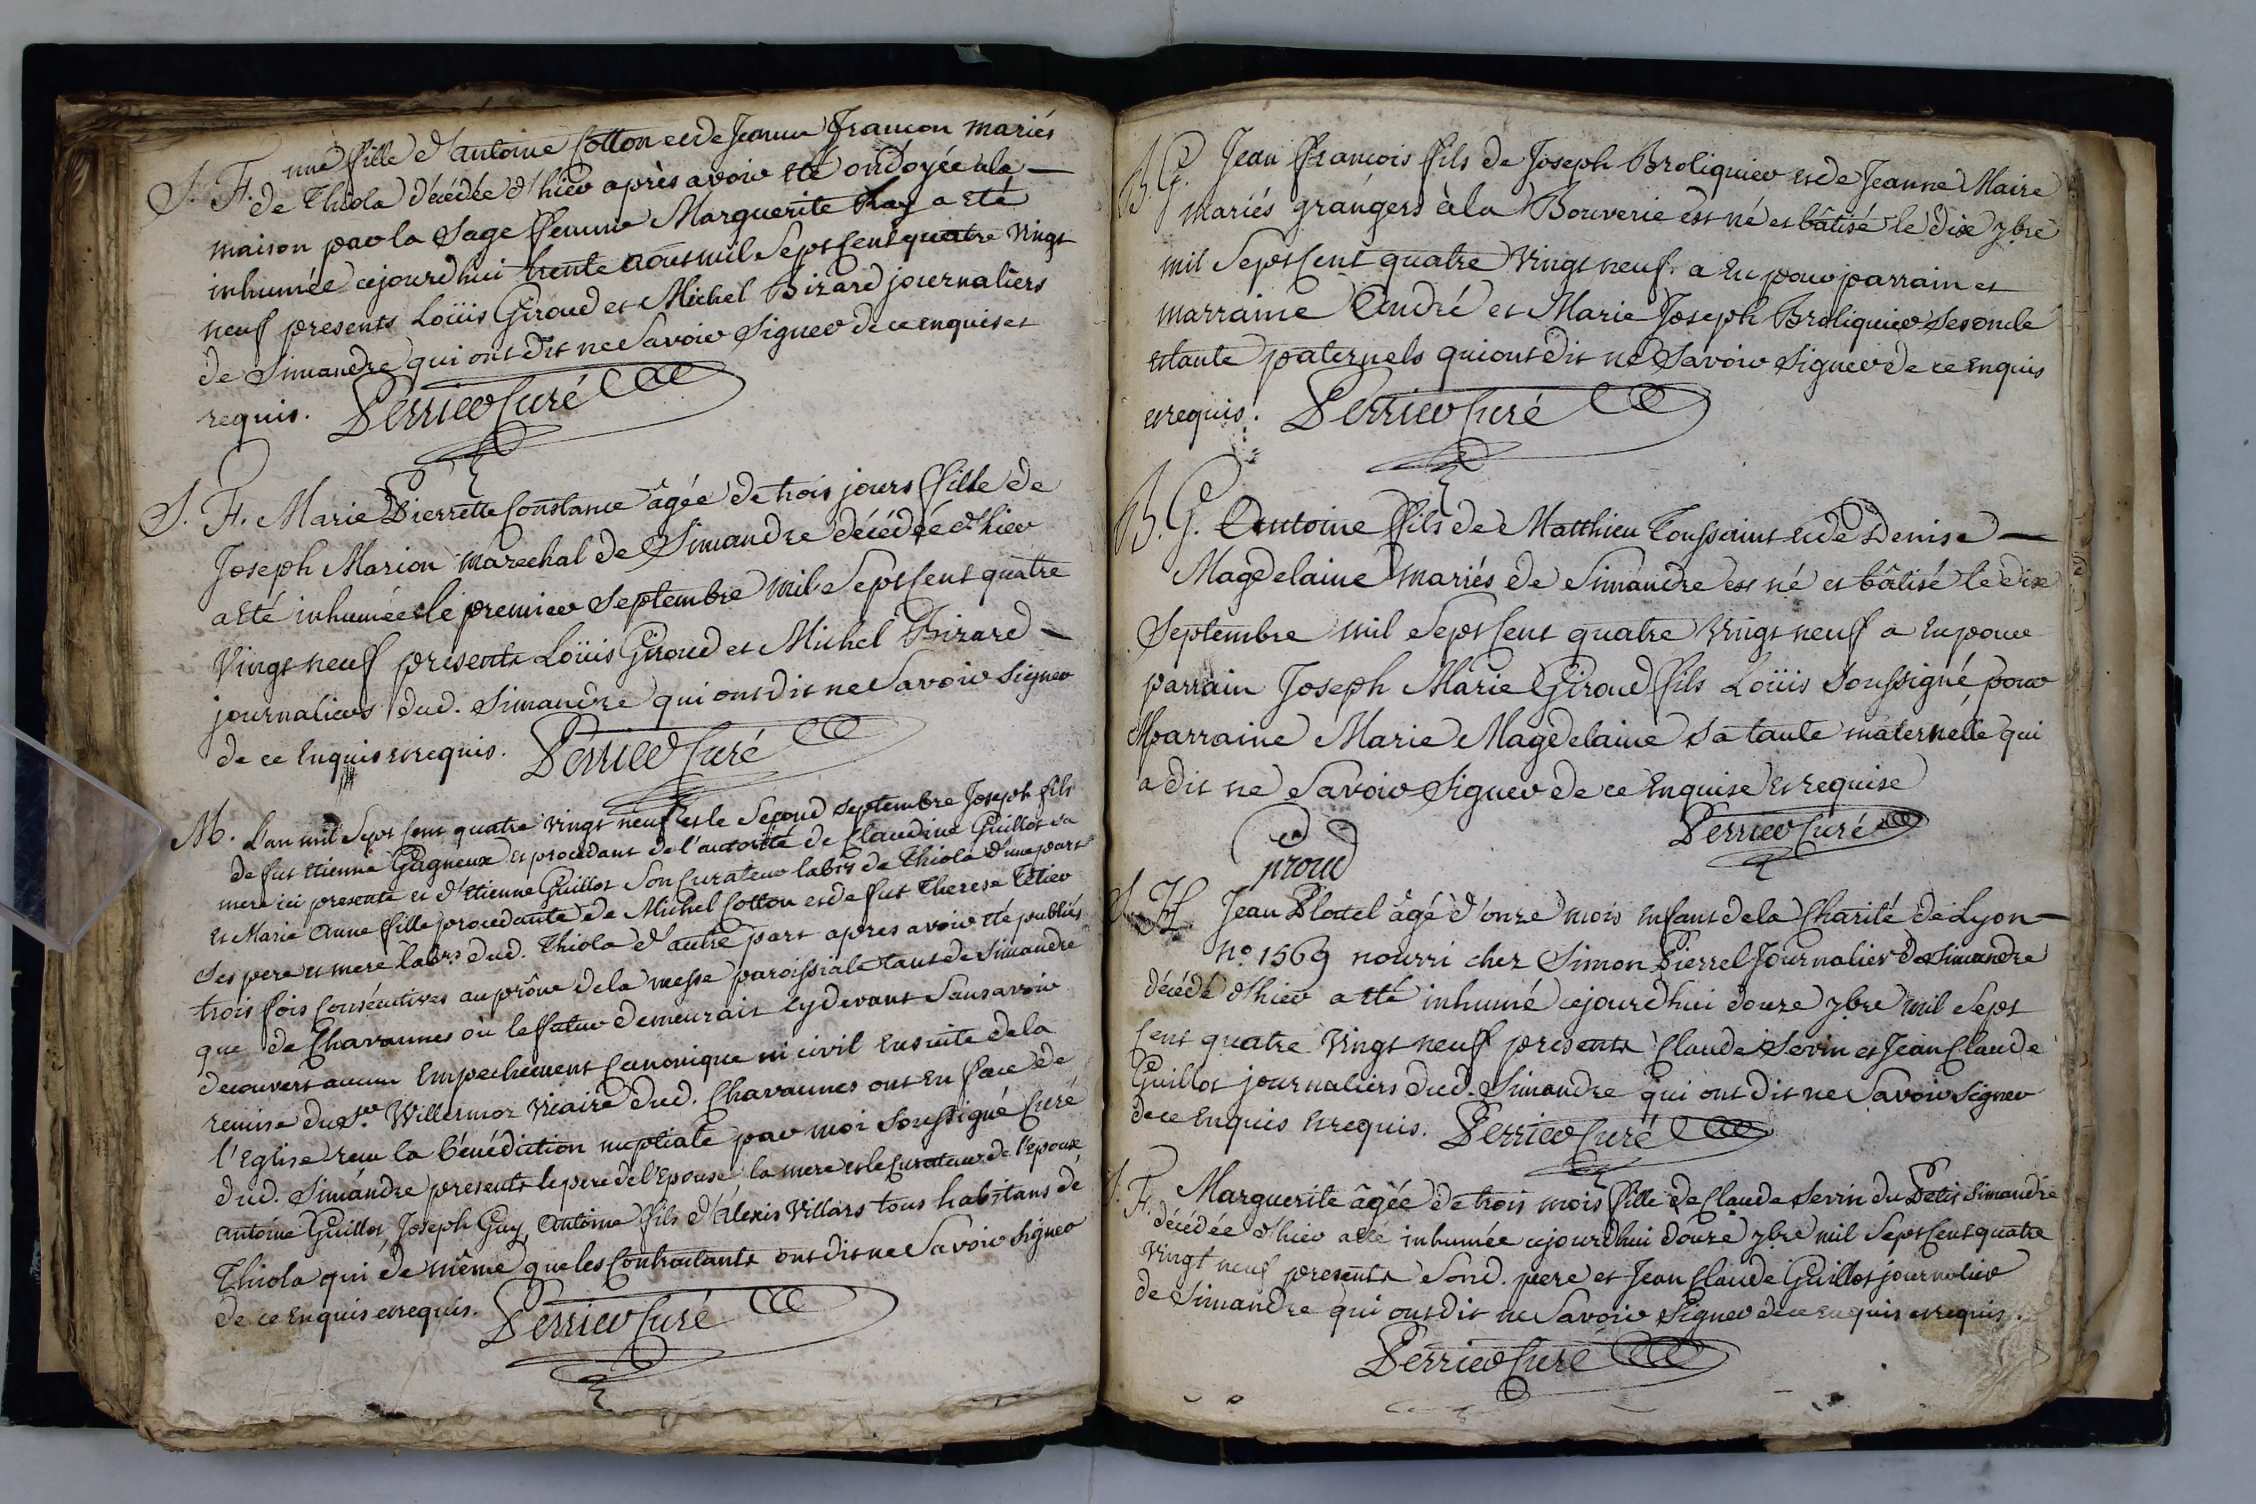 S. F. une fille d'antoine Cotton et de Jeanne françon mariés
de Thiola décédée d'hier après avoir été ondoyée a la
maison par la sage femme Marguerite Ray a eté
inhumée cejourdhui trente aout mil Sept Cent quatre vingt
neuf presents Loüis Giroud et Michel Bizard journaliers
de Simandre qui ont dit ne Savoir Signer de ce enquis et
requis. Perrier Curé
S. F. Marie Pierrette Constance âgée de trois jours fille de
Joseph Marion marechal de Simandre décédée d'hier
a eté inhumée le premier Septembre mil Sept Cent quatre
Vingt neuf presents Loüis Giroud et Michel Bizard
journaliers dud. Simandre qui ont dit ne Savoir Signer
de ce Enquis et requis. Perrier Curé
M. L'an mil Sept Cent quatre vingt neuf et le Second Septembre Joseph fils
de fut Etienne Gagneux et procedant de l'autorité de Claudine Guillot sa
mere ici presente et d'Etienne Guillot Son Curateur labrs de Thiola d'une part
et Marie Anne fille procedante de Michel Cotton et de fut Therese Tetier
Ses pere et mere labrs dud. Thiola d'autre part apres avoir eté publiés
trois fois Consécutives au prône de la messe paroissiale tant de Simandre
que de Chavannes où le futur demeurait cy devant Sans avoir
decouvert aucun Empechement Canonique ni civil Ensuite de la
remise du Sr. Willermoz vicaire dud. Chavannes ont En face de
l'Eglise reçu la bénédiction nuptiale par moi Soussigné Curé
dud. Simandre presents le pere de l'Epouse la mere et le Curateur de l'Epoux
antoine Guillot, Joseph Guy, antoine fils d'Alexis Villars tous habitans de
Thiola qui de même que les Contractants ont dit ne Savoir Signer
de ce Enquis et requis. Perrier Curé
B. G. Jean François fils de Joseph Broliquier et de Jeanne Maire
mariés grangers à la Bouverie est né et bâtisé le dix 7bre
mil Sept Cent quatre Vingt neuf a Eu pour parrain et
marraine André et Marie Joseph Broliquier Ses oncle
et tante paternels qui ont dit ne Savoir Signer de ce Enquis
et requis. Perrier Curé
B. G. Antoine fils de Matthieu Toussaint et de Denise
Magdelaine mariés de Simandre est né et bâtisé le dix
Septembre mil Sept Cent quatre Vingt neuf a Eu pour
parrain Joseph Marie Giroud fils Loüis Soussigné pour
Marraine Marie Magdelaine Sa tante maternelle qui
a dit ne Savoir Signer de ce Enquise et requise
Giroud Perrier Curé
S. H. Jean Plottel âgé d'onze mois Enfant de la Charité de Lyon
No. 1569 nourri chez Simon Pierrel Journalier de Simandre
décédé d'hier a eté inhumé cejourdhui douze 7bre mil Sept
Cent quatre Vingt neuf presents Claude Sevrin et Jean Claude
Guillot journaliers dud. Simandre qui ont dit ne Savoir Signer
de ce Enquis et requis. Perrier Curé
S. F. Marguerite âgée de trois mois fille de Claude Sevrin du Petit Simandre
décédée d'hier a eté inhumée cejourdhui douze 7bre mil Sept Cent quatre
vingt neuf presents Sond. pere et Jean Claude Guillot journalier
de Simandre qui ont dit ne Savoir Signer de ce enquis et requis.
Perrier Curé